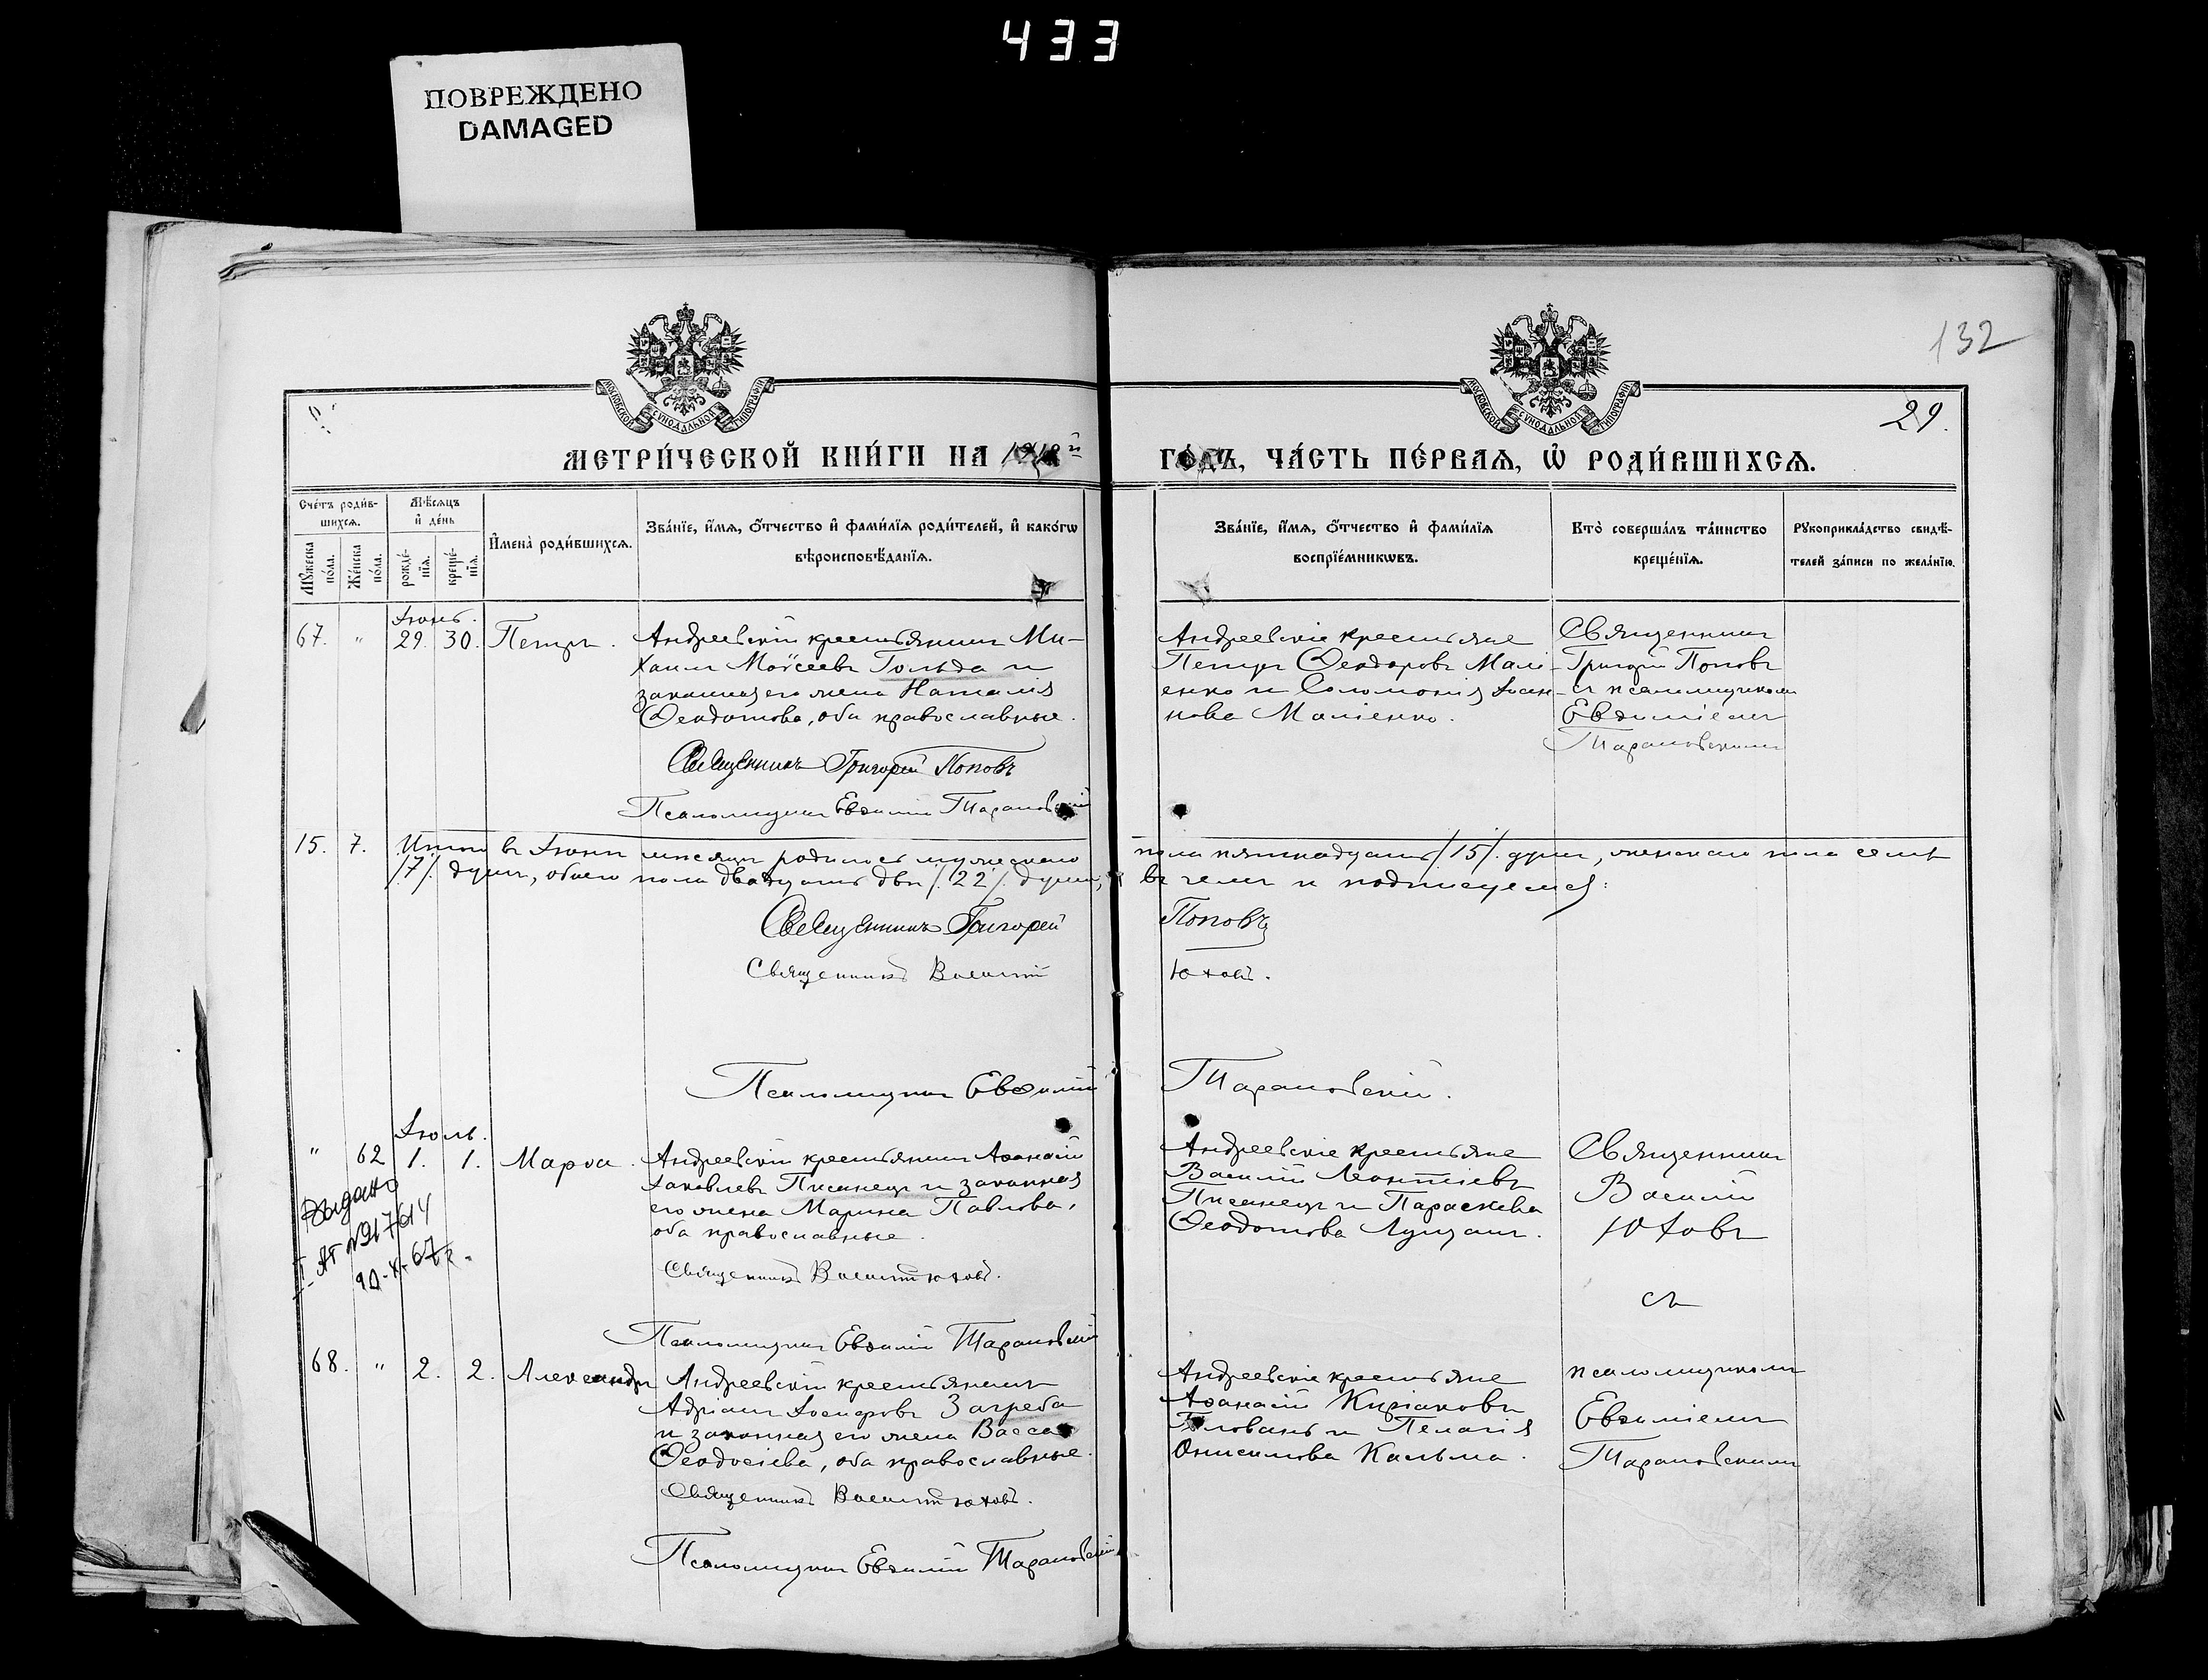 433
ПОВРЕЖДЕНО
DAMAGED
132
29.
МОСКОВСКОЙ СѴНОДАЛЬНОЙ ТИПОГРАФІИ
МОСКОВСКОЙ СѴНОДАЛЬНОЙ ТИПОГРАФІИ
МЕТРИ́ЧЕСКОЙ КНИ́ГИ НА
ГО́ДЪ, ЧА́СТЬ ПЕ́РВАѦ, Ѡ҆ РОДИ́ВШИХСѦ.
Сче́тъ роди́в-
шихсѧ.
Мѣ́сѧцъ
и҆ де́нь
Мꙋ́жеска
по́ла.
Же́нска
по́ла.
рожде́-
нїѧ.
креще́-
нїѧ.
И҆мена̀ роди́вшихсѧ.
Зва́нїе, и҆́мѧ, ѻ҆́тчество и҆ фами́лїѧ роди́телей, и҆ како́гѡ
вѣроисповѣ́данїѧ.
Зва́нїе, и҆́мѧ, ѻ҆́тчество и҆ фами́лїѧ
воспрїе́мникѡвъ.
Кто̀ соверша́лъ та́инство
креще́нїѧ.
Рꙋкоприкла́дство свидѣ́-
телей за́писи по жела́нїю.
Іюнь.
67. " 29. 30. Петръ.
Андреевскій крестьянинъ Ми-
хаилъ Моѵсеевъ Гольда и
законная его жена Наталія
Ѳеодотова, оба православные.
Священникъ Григорій Поповъ
Псаломщикъ Евѳимій Тарановскій
Андреевскіе крестьяне
Петръ Ѳеодоровъ Малі-
енко и Соломонія Іоан-
нова Маліенко.
Священникъ
Григорій Поповъ
съ псаломщикомъ
Евѳиміемъ
Тарановскимъ
15. 7. Итого въ Іюнѣ мѣсяцѣ родилось мужескаго пола пятнадцать /15/ душъ, женскаго пола семь
/7/ душъ, обоего пола двадцать двѣ /22/ души, въ чемъ и подписуемся:
Священникъ Григорій Поповъ
Священникъ Василій Юховъ.
Псаломщикъ Евѳимій Тарановскій.
Іюль.
" 62 1. 1. Марѳа.
Андреевскій крестьянинъ Аѳанасій
Іаковлевъ Писанецъ и законная
его жена Марина Павлова,
оба православные.
Священникъ Василій Юховъ.
Псаломщикъ Евѳимій Тарановскій
Андреевскіе крестьяне
Василій Леонтіевъ
Писанецъ и Параскева
Ѳеодотова Луцанъ.
Священникъ
Василій
Юховъ
съ
псаломщикомъ
Евѳиміемъ
Тарановскимъ
Выдано
68. " 2. 2. Александръ
Андреевскій крестьянинъ
Адріанъ Іосифовъ Загреба
и законная его жена Васса
Ѳеодосіева, оба православные.
Священникъ Василій Юховъ.
Псаломщикъ Евѳимій Тарановскій
Андреевскіе крестьяне
Аѳанасій Киріаковъ
Головань и Пелагія
Онисимова Кальма.